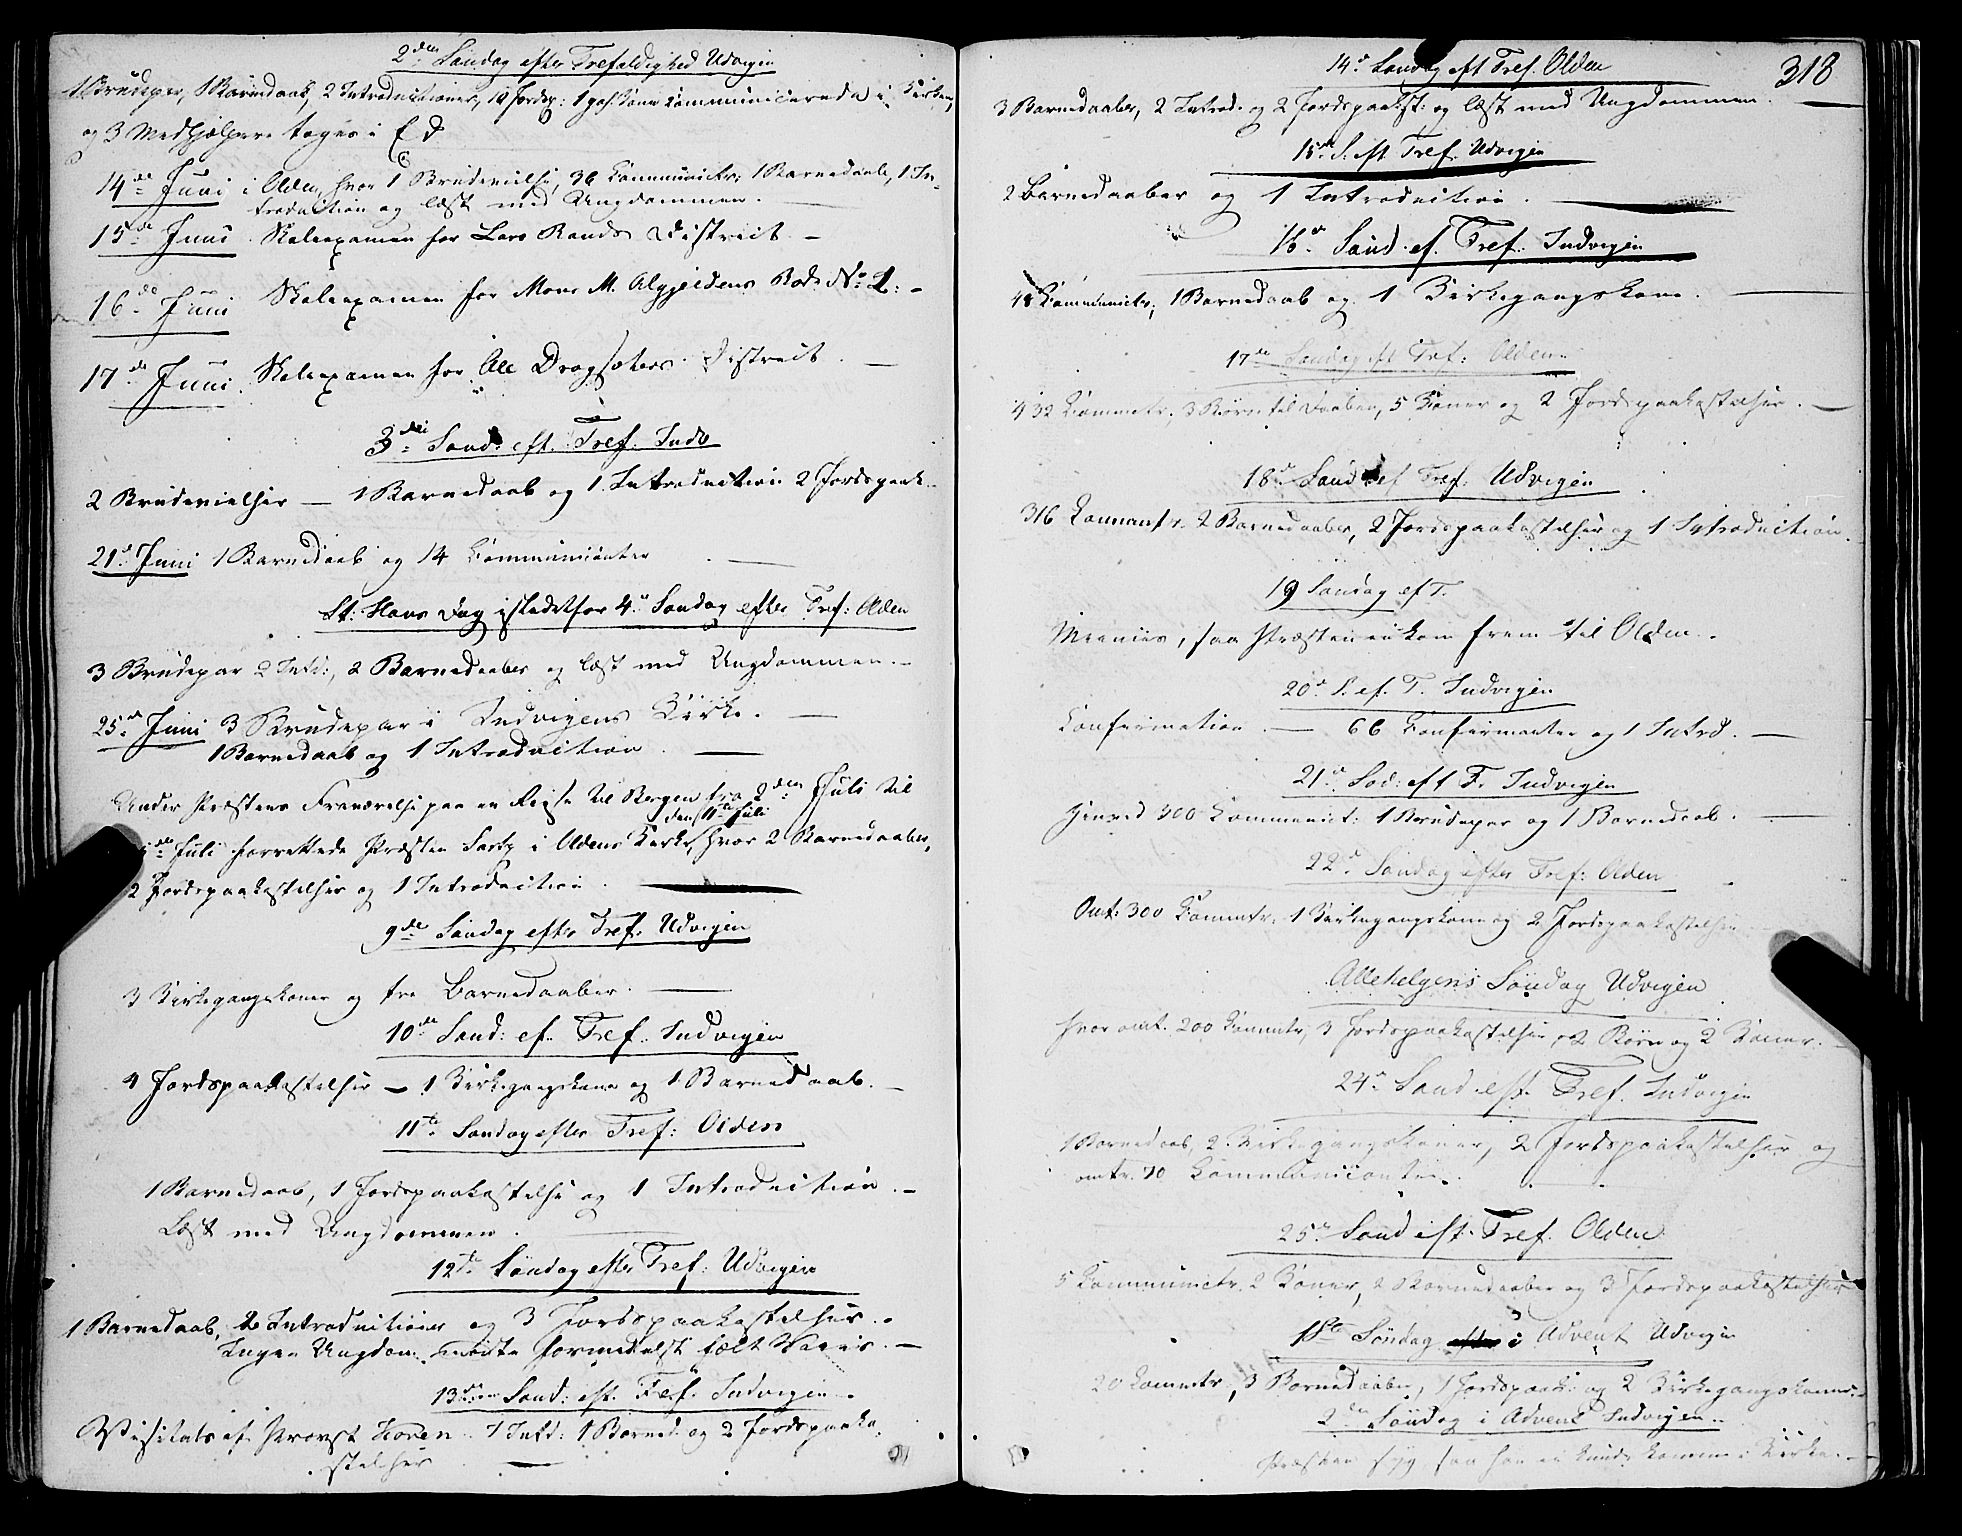 2den Søndag efter Trefoldighed Udvigen
1 Brudepar, 1 Barnedaab, 2 Introductioner, 10 Jordsp: 1 Communicerede i Kirken,
og 3 Medhjælpere toges i Ed
14de Juni i Olden, hvor 1 Brudevielse, 36 Communicts, 1 Barnedaab, 1 In-
troduction og læst med Ungdommen. —
15de Juni Skoleexamen for Lars Rands District. —
16de Juni Skoleexamen for Mons M. Rode No 1: —
17de Juni. Skoleexamen for Ole Dragsets District. —
3die Sønd: eft. Tref. Indv
2 Brudevielser — 1 Barnedaab og 1 Introduction 2 Jordspaak.
21d Juni 1 Barnedaab og 14 Communicanter —
St: Hans Dag istedetfor 4d Søndag efter Tref: Olden
3 Brudepar 2 Intd:, 2 Barnedaaber og læst med Ungdommen. —
25d Juni 3 Brudepar i Indvigens Kirke. —
1 Barnedaab og 1 Introduction. —
Under Præstens Fraværelse paa en Rejse til Bergen fra 2den Juli til
den 11te Juli
de Juli forrettede Præsten i Oldens Kirke, hvor 2 Barnedaaber,
2 Jordspaakastelser og 1 Introduction. —
9de Søndag efter Tref: Udvigen
3 Kirkegangskoner og tre Barnedaaber. —
10de Sønd: ef. Tref. Indvigen
4 Jordspaakastelser — 1 Kirkegangskone og 1 Barnedaab. —
11te Søndag efter Tref: Olden
1 Barnedaab, 1 Jordspaakastelse og 1 Introduction. —
Læst med Ungdommen. —
12te Søndag efter Tref: Udvigen
1 Barnedaab, 2 Introductioner og 3 Jordspaakastelser. —
Ingen Ungdom mødte formedelst fælt Veir. —
13de Sønd: eft. Tref. Indvigen
Visitats af Provst Koren. 1 Intd: 1 Barned: og 2 Jordspaaka-
stelser —
318
14d Søndag eft Tref. Olden
3 Barnedaaber, 2 Introd. og 2 Jordspaakst: og læst med Ungdommen. —
15de S. eft Tref. Udvigen
2 Barnedaaber og 1 Introduction. —
16de Sønd. ef. Tref. Indvigen
Communictr, 1 Barnedaab og 1 Kirkegangskone. —
17de Søndag eft Tref: Olden
432 Commtr. 3 Børn til Daaben, 5 Koner og 2 Jordspaakastelser. —
18d Sønd ef Tref: Udvigen
316 Communtr. 2 Barnedaaber, 2 Jordspaakastelser og 1 Introduction.
19 Søndag ef T.
saa Præsten ei kom frem til Olden. —
20d S. ef. T. Indvigen
Confirmation. — 66 Confirmanter og 1 Intrd. —
21d Sød: eft T. Indvigen
henved 300 Communict: 1 Brudepar og 1 Barnedaab. —
22d Søndag efter Tref: Olden
Omt: 300 Commtr. 1 Kirkegangskone og 2 Jordspaakastelser —
Allehelgens Søndag Udvigen
hvor omt. 200 Commtr, 3 Jordspaakastelser, 2 Børn og 2 Koner. —
24d Sønd eft. Tref. Indvigen
1 Barnedaab, 2 Kirkegangskoner, 2 Jordspaakastelser og
omtr. 70 Communicanter.
25d Sønd eft. Tref. Olden
5 Communictr. 2 Koner, 2 Barnedaaber og 3 Jordspaakastelser
1ste Søndag i Advent Udvigen
20 Commtr, 3 Barnedaaber, 1 Jordspaak: og 2 Kirkegangskoner. —
2den Søndag i Advent Indvigen
Præsten syg, saa han ei kunde komme i Kirke. —